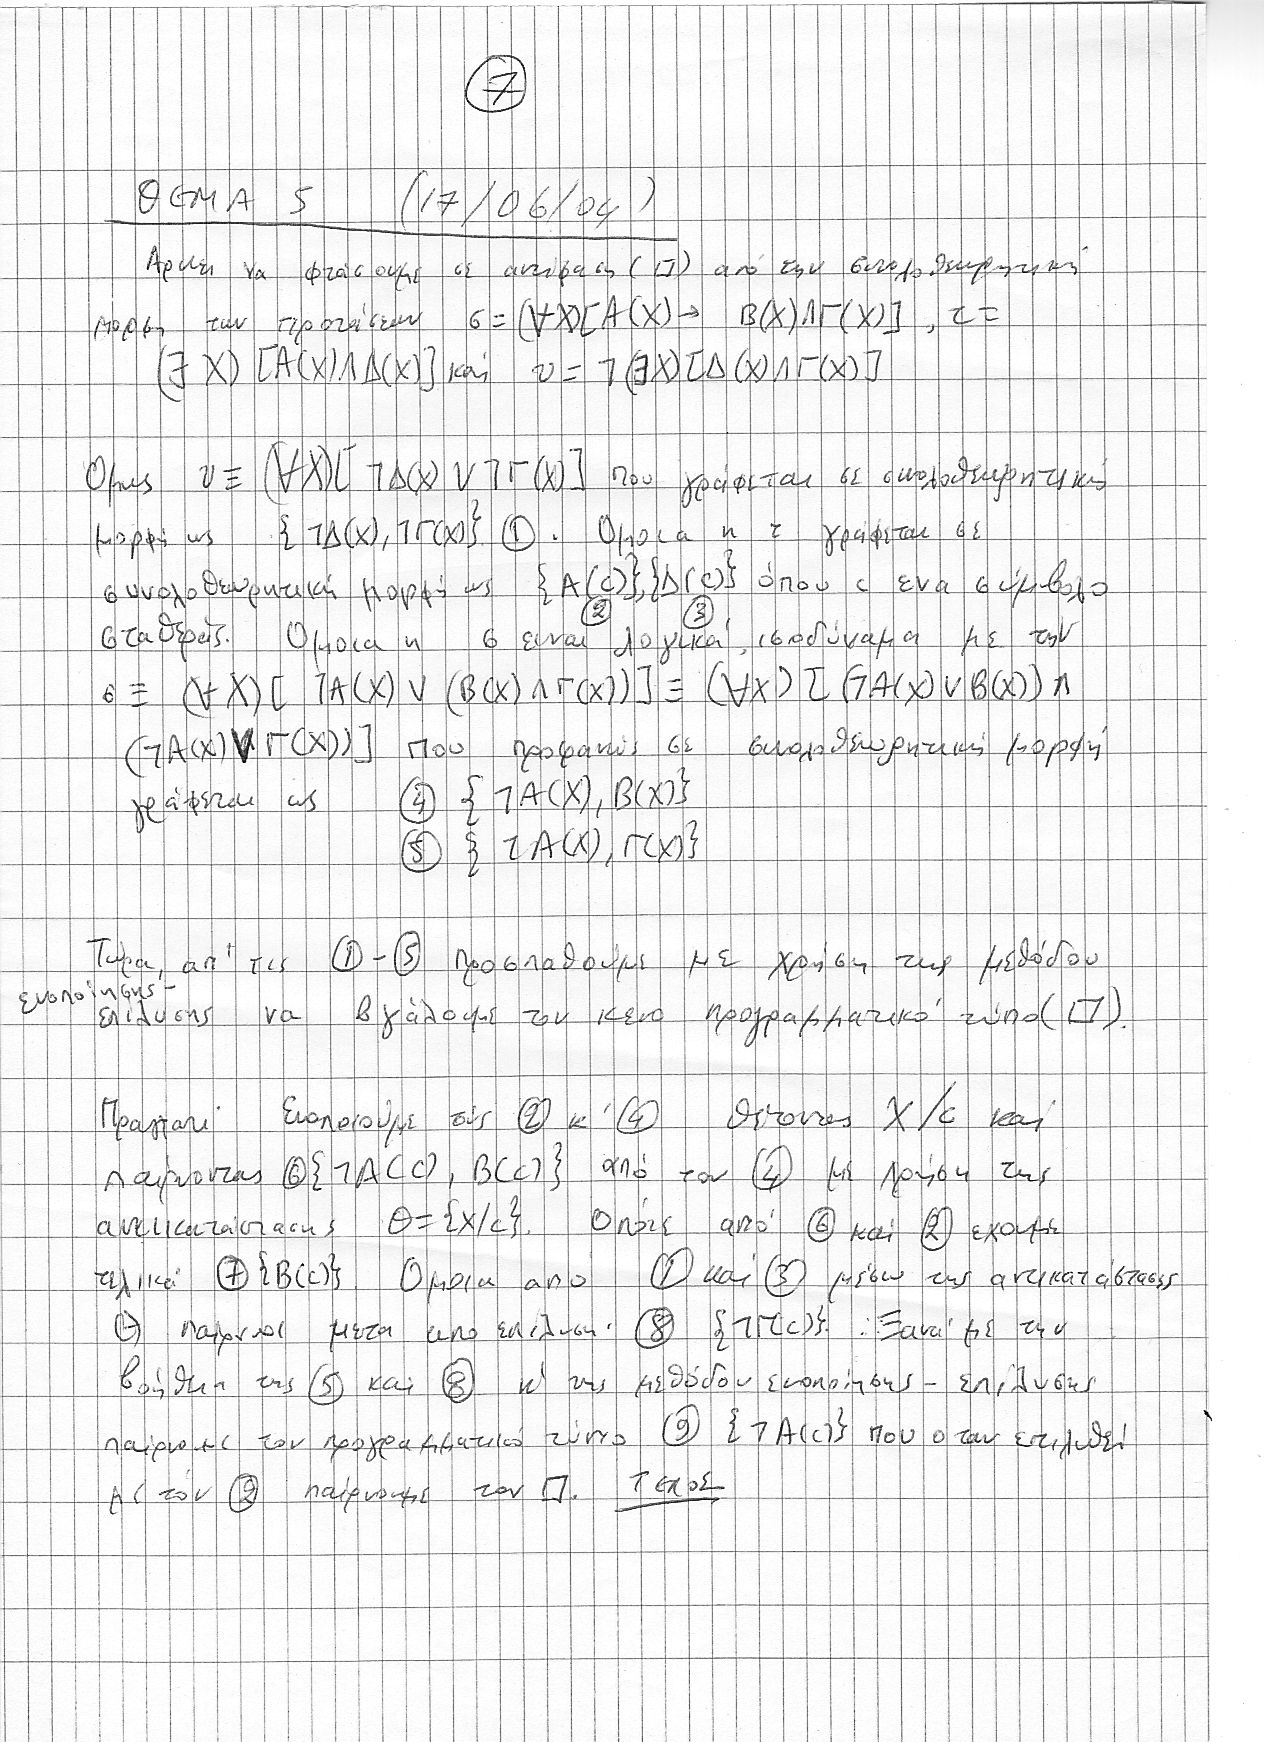 7
ΘΕΜΑ 5 (17/06/04)
Αρκει να φτάσουμε σε αντίφαση (□) από την συνολοθεωρητική
μορφή των προτάσεων σ = (∀X)[A(X) → B(X)∧Γ(X)], τ =
(∃X) [A(X)∧Δ(X)] και υ = ¬(∃X)[Δ(X)∧Γ(X)]
Ομως υ ≡ (∀X)[¬Δ(X) ∨ ¬Γ(X)] που γράφεται σε συνολοθεωρητική
μορφή ως {¬Δ(X), ¬Γ(X)} ①. Ομοια η τ γράφεται σε
συνολοθεωρητική μορφή ως {A(c)},{Δ(c)} όπου c ενα σύμβολο
② ③
σταθεράς. Ομοια η σ ειναι λογικά ισοδύναμα με την
σ ≡ (∀X)[¬A(X) ∨ (B(X)∧Γ(X))] ≡ (∀X)[(¬A(X)∨B(X))∧
(¬A(X)∨Γ(X))] που προφανώς σε συνολοθεωρητική μορφή
γράφεται ως ④ {¬A(X), B(X)}
⑤ {¬A(X), Γ(X)}
Τώρα, απ' τις ①-⑤ προσπαθούμε με χρήση της μεθόδου
ενοποίησης-
επίλυσης να βγάλουμε τον κενο προγραμματικό τύπο (□).
Πραγματι ενοποιούμε τους ② κ' ④ θέτοντας X/c και
παίρνοντας ⑥{¬A(c), B(c)} από τον ④ με χρήση της
αντικατάστασης Θ={X/c}. Οπότε από ⑥ και ② εχουμε
τελικά ⑦{B(c)}. Ομοια απο ① και ③ μέσω της αντικατάστασης
Θ μετα απο επίλυση ⑧ {¬Γ(c)}. Ξανά με την
βοήθεια της ⑤ και ⑧ κ' της μεθόδου ενοποίησης - επίλυσης
παίρνουμε τον προγραμματικό τύπο ⑨ {¬A(c)} που οταν επιλυθεί
με τόν ② παίρνουμε τον □. ΤΕΛΟΣ